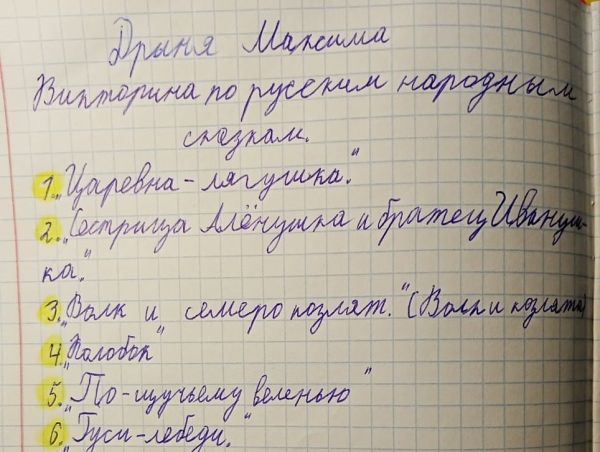 Дрыня Максима
Викторина по русским народным
сказкам.
1. „Царевна-лягушка."
2. „Сестрица Алёнушка и братец Ивануш-
ка."
3. „Волк и семеро козлят." (Волк и козлята)
4. „Колобок"
5. „По-щучьему веленью"
6. „Гуси-лебеди."